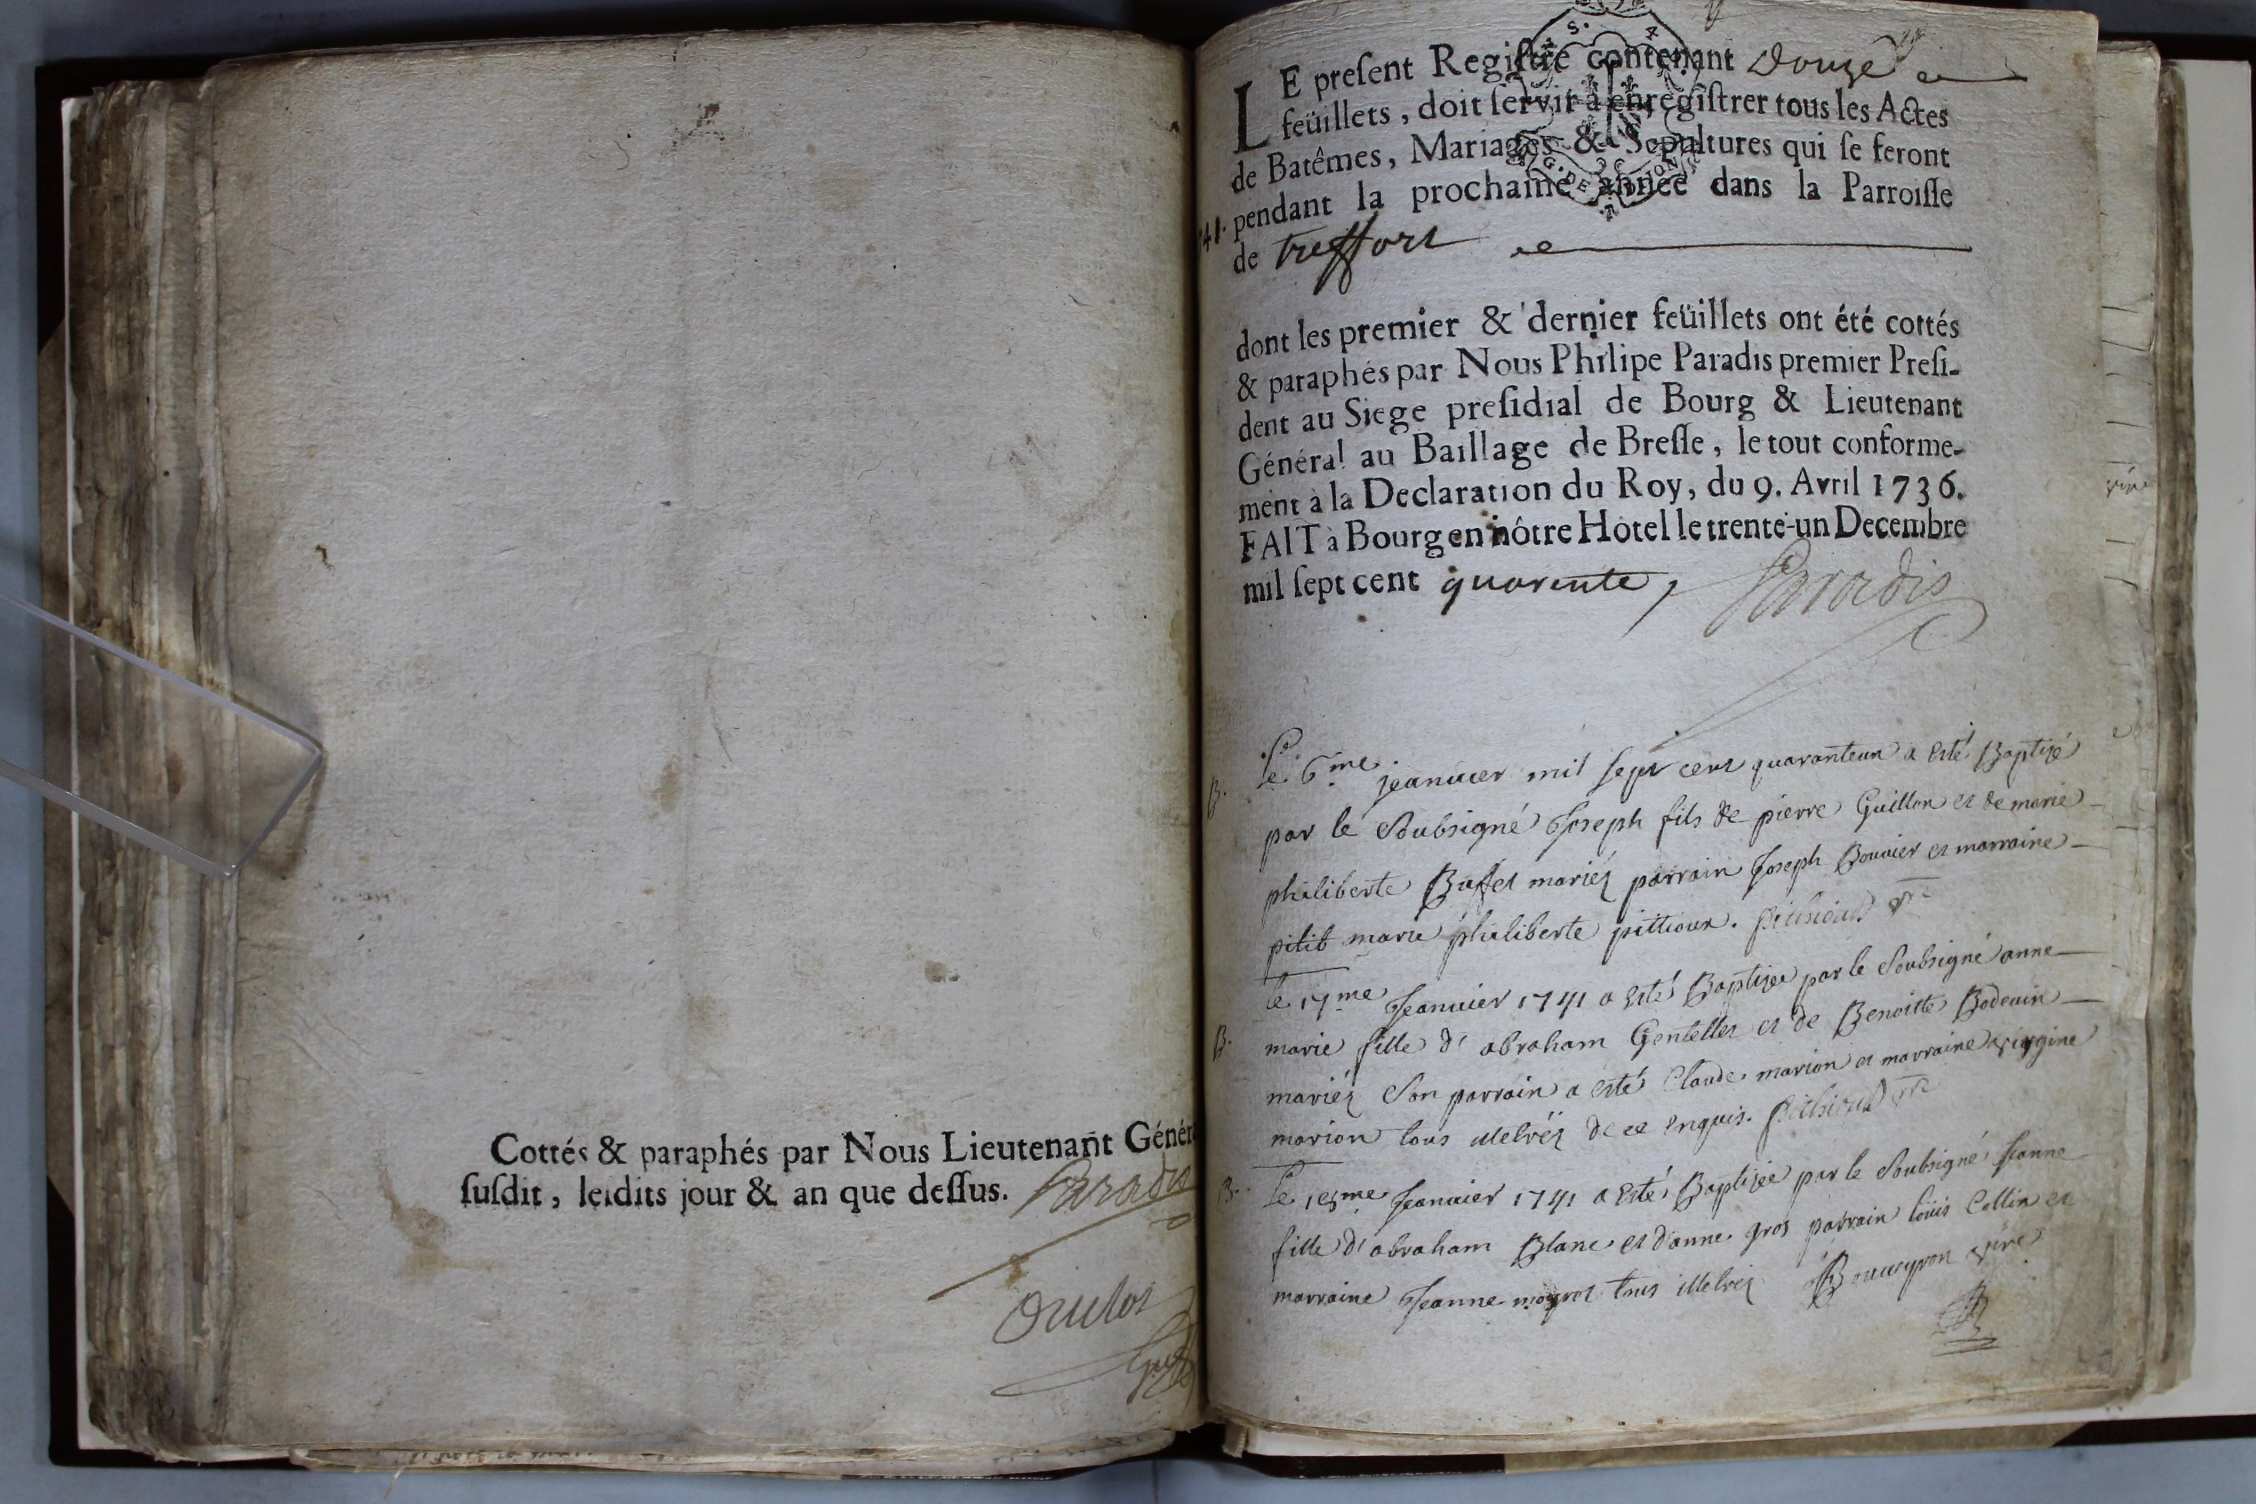 Cottés & paraphés par Nous Lieutenant Génér
ſuſdit, leſdits jour & an que deſſus. Paradis
LE preſent Regiſtre contenant Douze
feüillets, doit ſervir à enregiſtrer tous les Actes
de Batêmes, Mariages & Sepultures qui ſe feront
41. pendant la prochaine année dans la Parroiſſe
de treffort
dont les premier & dernier feüillets ont été cottés
& paraphés par Nous Philipe Paradis premier Preſi-
dent au Siege preſidial de Bourg & Lieutenant
Général au Baillage de Breſſe, le tout conforme-
ment à la Declaration du Roy, du 9. Avril 1736.
FAIT à Bourg en nôtre Hôtel le trente-un Decembre
mil ſept cent quarente, Paradis
B. Le 6me jeanuier mil sept cent quaranteun a esté Baptizé
par le Soubsigné Joseph fils de pierre Guillon et de marie
philiberte Buffet mariéz parrain Joseph Bouuier et marraine
marie philiberte pittioux.
le 17me Jeanuier 1741 a esté Baptizee par le Soubsigné anne
B. marie fille d' abraham Gentellet et de Benoitte Bodeuin
mariéz Son parrain a esté Claude marion et marraine virgine
marion tous illetréz de ce enquis.
B. Le Jeanuier 1741 a esté Baptizée par le Soubsigné Jeanne
fille d' abraham Blanc et d'anne gros parrain loüis Collin et
marraine Jeanne tous illetréz Bouueyron vire